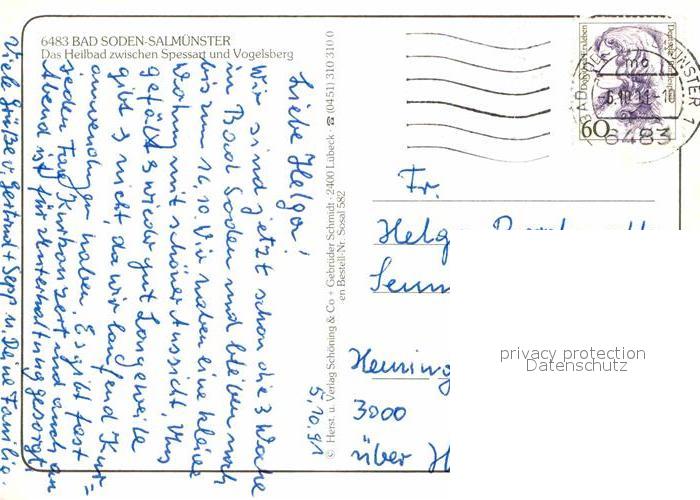 6483 BAD SODEN-SALMÜNSTER
Das Heilbad zwischen Spessart und Vogelsberg
5.10.91
Liebe Helga!
Wir sind jetzt schon die 3 Woche
in Bad Soden und bleiben noch
bis zum 14.10. Wir haben eine kleine
Wohnung mit schöner Aussicht. Uns
gefällt's wieder gut Langeweile
gibt's nicht, da wir laufend Kur=
anwendungen haben. Es gibt fast
jeden Tag Kurkonzert und auch am
Abend ist für Unterhaltung gesorgt.
Viele Grüße v. Gertrud + Sepp u. Deine Familie.
© Herst. u. Verlag Schöning & Co + Gebrüder Schmidt · 2400 Lübeck · ☎ (0451) 310 310 0
en Bestell-Nr. Sosal 582
60
6483
Fr.
Helg
Senn
Henning
3000
über H
privacy protection
Datenschutz